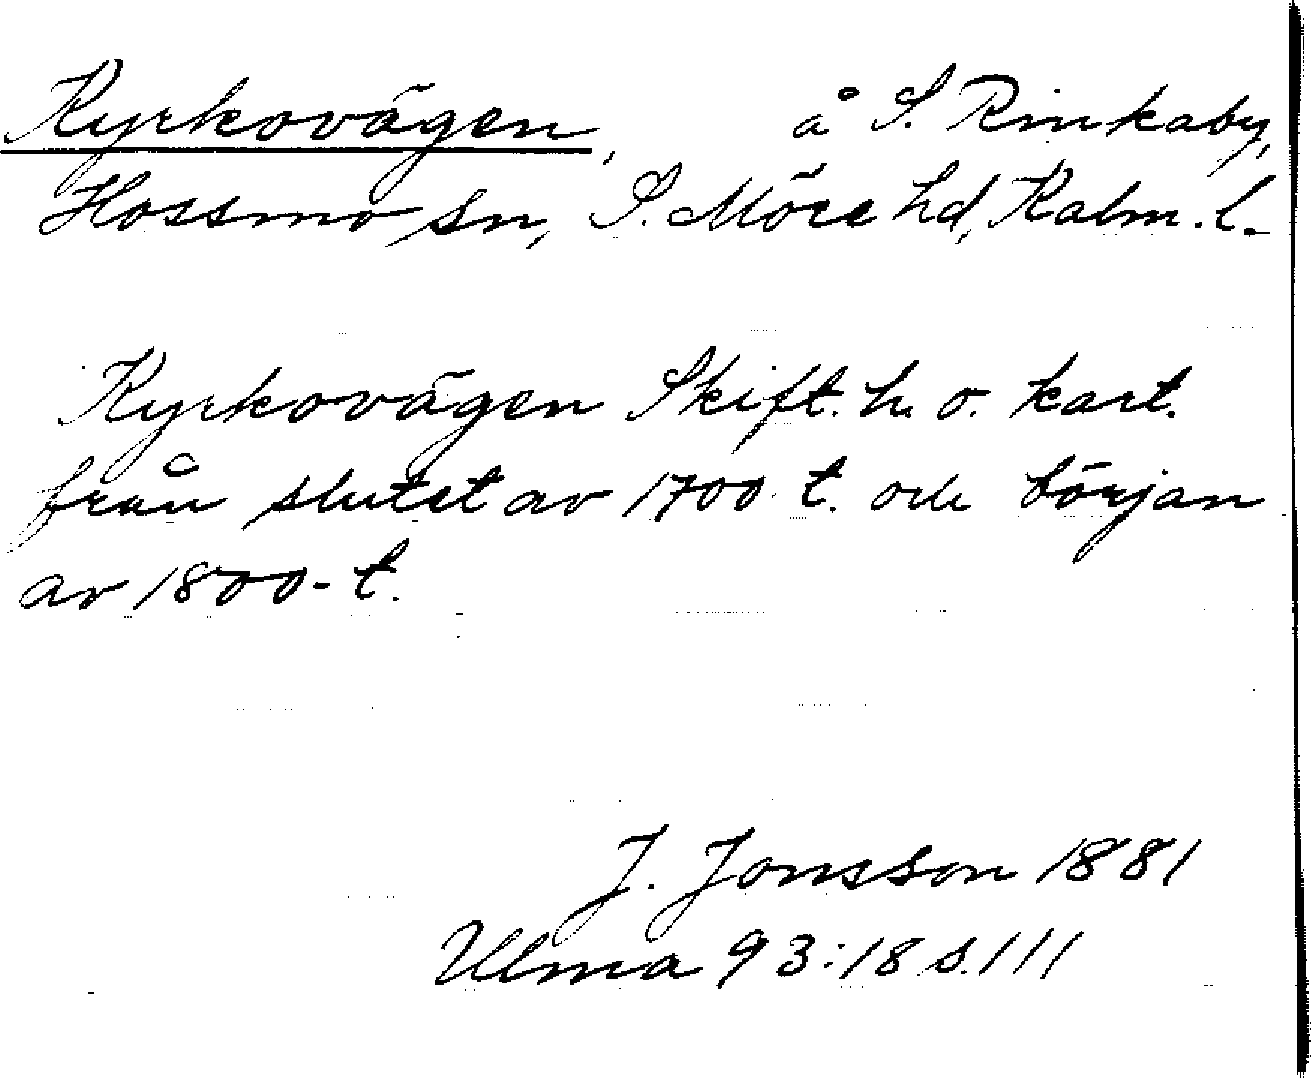 Kyrkovägen, å S. Rinkaby,
Hossmo sn, S. Möre hd, Kalm. l.
Kyrkovägen Skift. h. o. kart.
från slutet av 1700-t. och början
av 1800-t.
J. Jonsson 1881
Ulma 93:18 s. 111